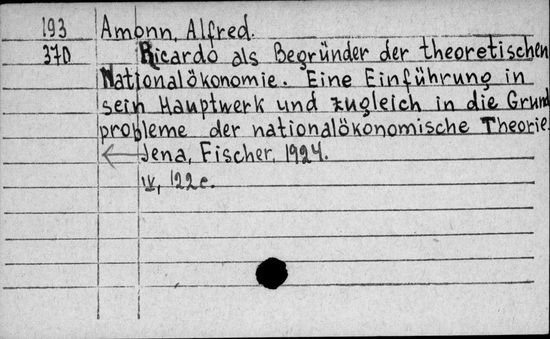 193 Amonn, Alfred.
370 Ricardo als Begründer der theoretischen
Nationalökonomie. Eine Einführung in
sein Hauptwerk und zugleich in die Grund
probleme der nationalökonomische Theorie.
Jena, Fischer, 1924.
IV, 122 c.